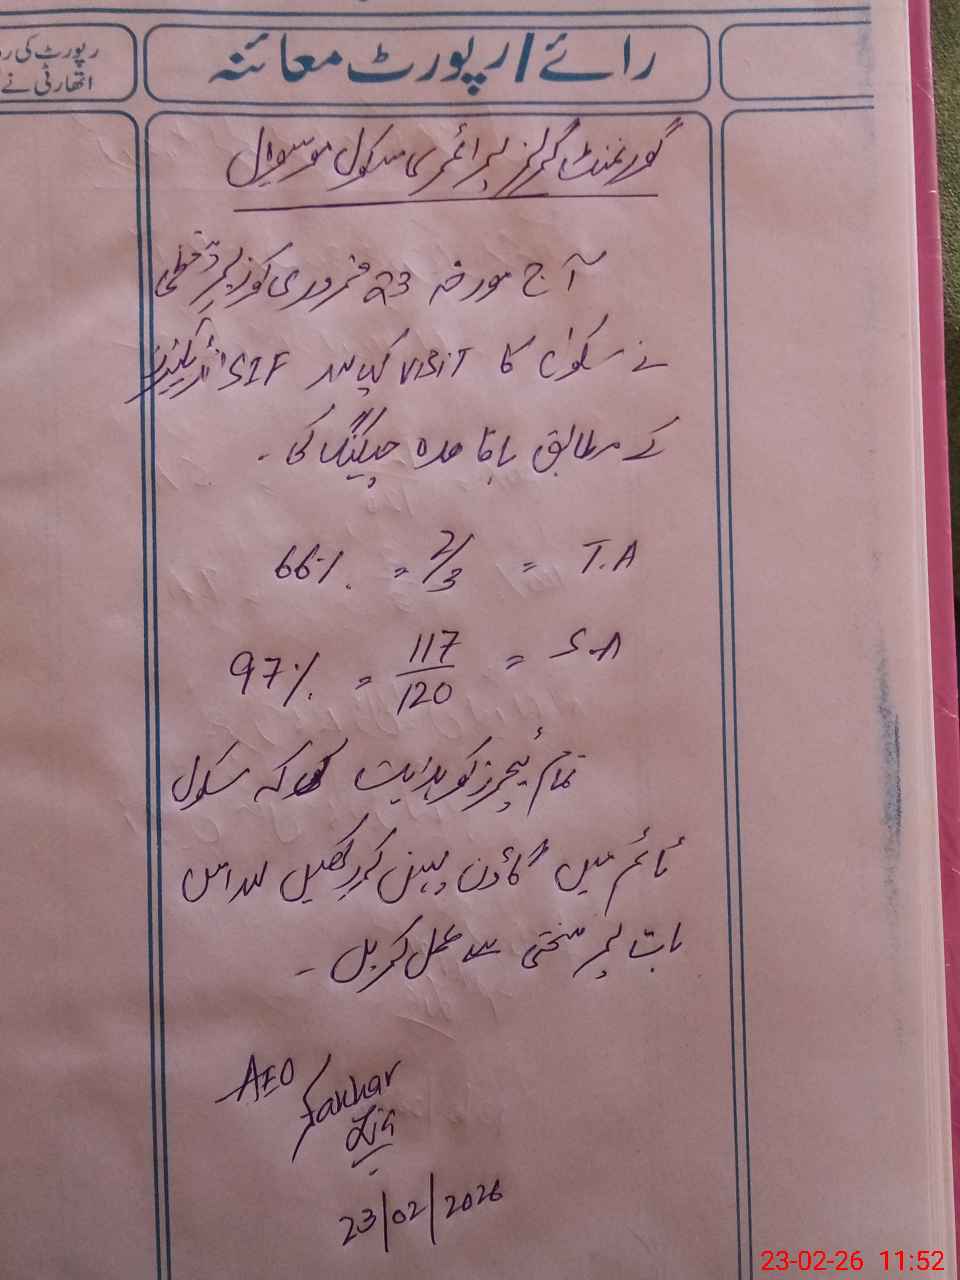 رپورٹ کی
اتھارٹی نے
رائے/رپورٹ معائنہ
گورنمنٹ گرلز پرائمری سکول موسیوال
آج مورخہ 23 فروری کو زیر دستخطی
نے سکول کا VISIT کیا اور SIF انڈیکیٹرز
کے مطابق باقاعدہ چیکنگ کی ۔
T.A = 2/3 = 66%
S.A = 117/120 = 97%
تمام ٹیچرز کو ہدایت کی کہ سکول
ٹائم میں گاؤن پہن کر رکھیں اور اس
بات پر سختی سے عمل کریں ۔
AEO
Fakhar
Zia
23/02/2026
23-02-26 11:52